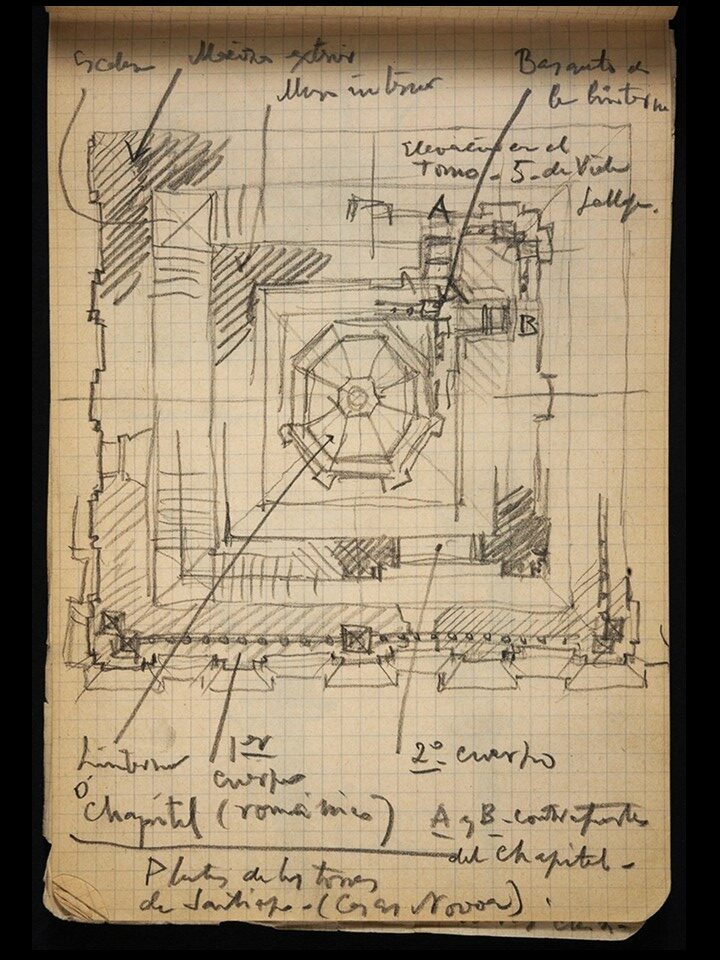 Escalera
Macizo exterior
Muro interior
Basamento de
la linterna
Elevación en el
Tomo - 5 - de Viollet
A
B
Linterna
ó
Chapitel (románico)
1er
cuerpo
2º cuerpo
A y B - contrafuertes
del chapitel -
Planta de las torres
de Santiago - (Casas Novoa) .